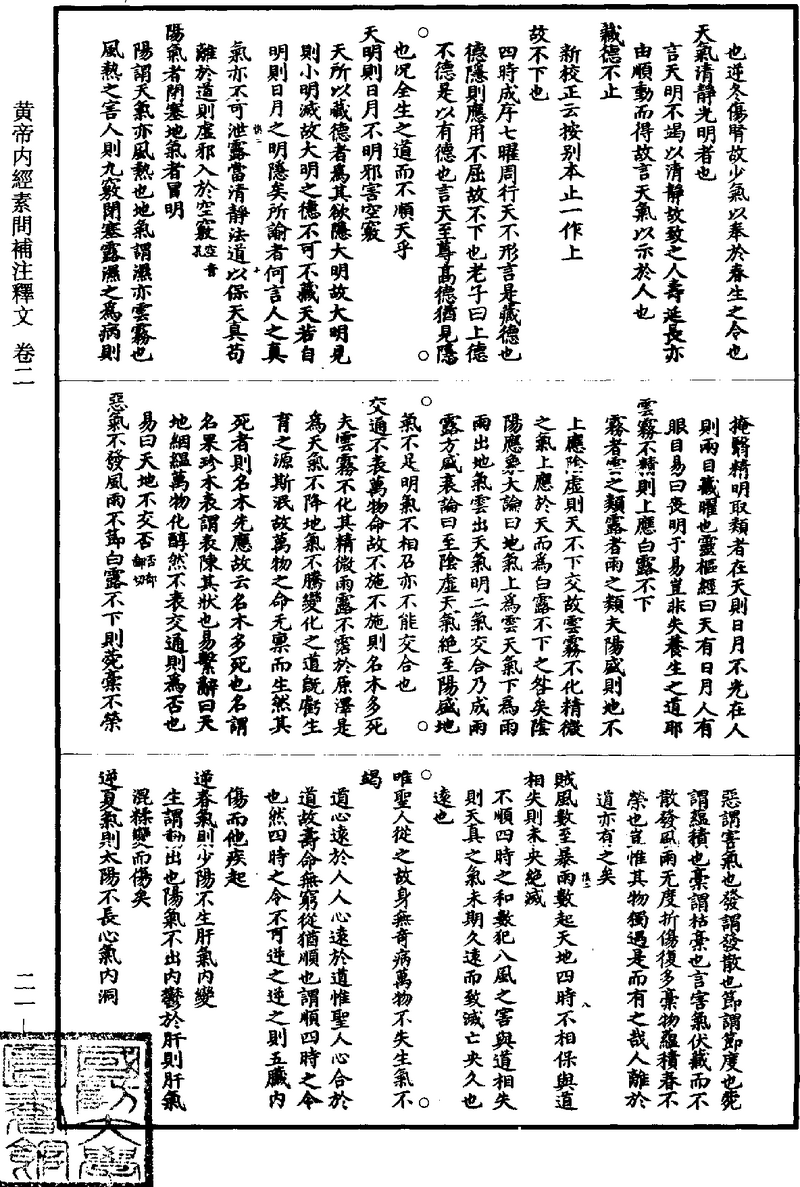 也逆冬傷腎故少氣以奉於春生之令也
天氣清靜光明者也
言天明不竭以清靜故致之人壽延長亦
由順動而得故言天氣以示於人也
藏德不止
新校正云按别本止一作上
故不下也
四時成序七曜周行天不形言是藏德也
德隱則應用不屈故不下也老子曰上德
不德是以有德也言天至尊高德猶見隱
也况全生之道而不順天乎
天明則日月不明邪害空竅
天所以藏德者爲其欲隱大明故大明見
則小明滅故大明之德不可不藏天若自
明則日月之明隱矣所諭者何言人之真
氣亦不可泄露當清靜法道以保天真苟
離於道則虛邪入於空竅空音孔
陽氣者閉塞地氣者冒明
陽謂天氣亦風熱也地氣謂濕亦雲霧也
風熱之害人則九竅閉塞露濕之爲病則
掩翳精明取類者在天則日月不光在人
則兩目藏曜也靈樞經曰天有日月人有
眼目易曰喪明于易豈非失養生之道耶
雲霧不精則上應白露不下
霧者雲之類露者雨之類夫陽盛則地不
上應陰虛則天不下交故雲霧不化精微
之氣上應於天而爲白露不下之咎矣陰
陽應象大論曰地氣上爲雲天氣下爲雨
雨出地氣雲出天氣明二氣交合乃成雨
露方盛衰論曰至陰虛天氣絶至陽盛地
氣不足明氣不相召亦不能交合也
交通不表萬物命故不施不施則名木多死
夫雲霧不化其精微雨露不霑於原澤是
爲天氣不降地氣不騰變化之道既虧生
育之源斯泯故萬物之命无禀而生然其
死者則名木先應故云名木多死也名謂
名果珍木表謂表陳其狀也易繫辭曰天
地絪緼萬物化醇然不表交通則爲否也
易曰天地不交否
惡氣不發風雨不節白露不下則菀槀不榮
惡謂害氣也發謂發散也節謂節度也菀
謂蘊積也槀謂枯槀也言害氣伏藏而不
散發風雨无度折傷復多槀物蘊積春不
榮也豈惟其物獨遇是而有之哉人離於
道亦有之矣
賊風數至暴雨數起天地四時不相保與道
相失則未央絶滅
不順四時之和數犯八風之害與道相失
則天真之氣未期久遠而致滅亡央久也
遠也
唯聖人從之故身無奇病萬物不失生氣不
竭
道心遠於人人心遠於道惟聖人心合於
道故壽命無窮從猶順也謂順四時之令
也然四時之令不可逆之逆之則五臟内
傷而他疾起
逆春氣則少陽不生肝氣内變
生謂動出也陽氣不出内鬱於肝則肝氣
混糅變而傷矣
逆夏氣則太陽不長心氣内洞
黄帝内經素問補注釋文 卷二
二一